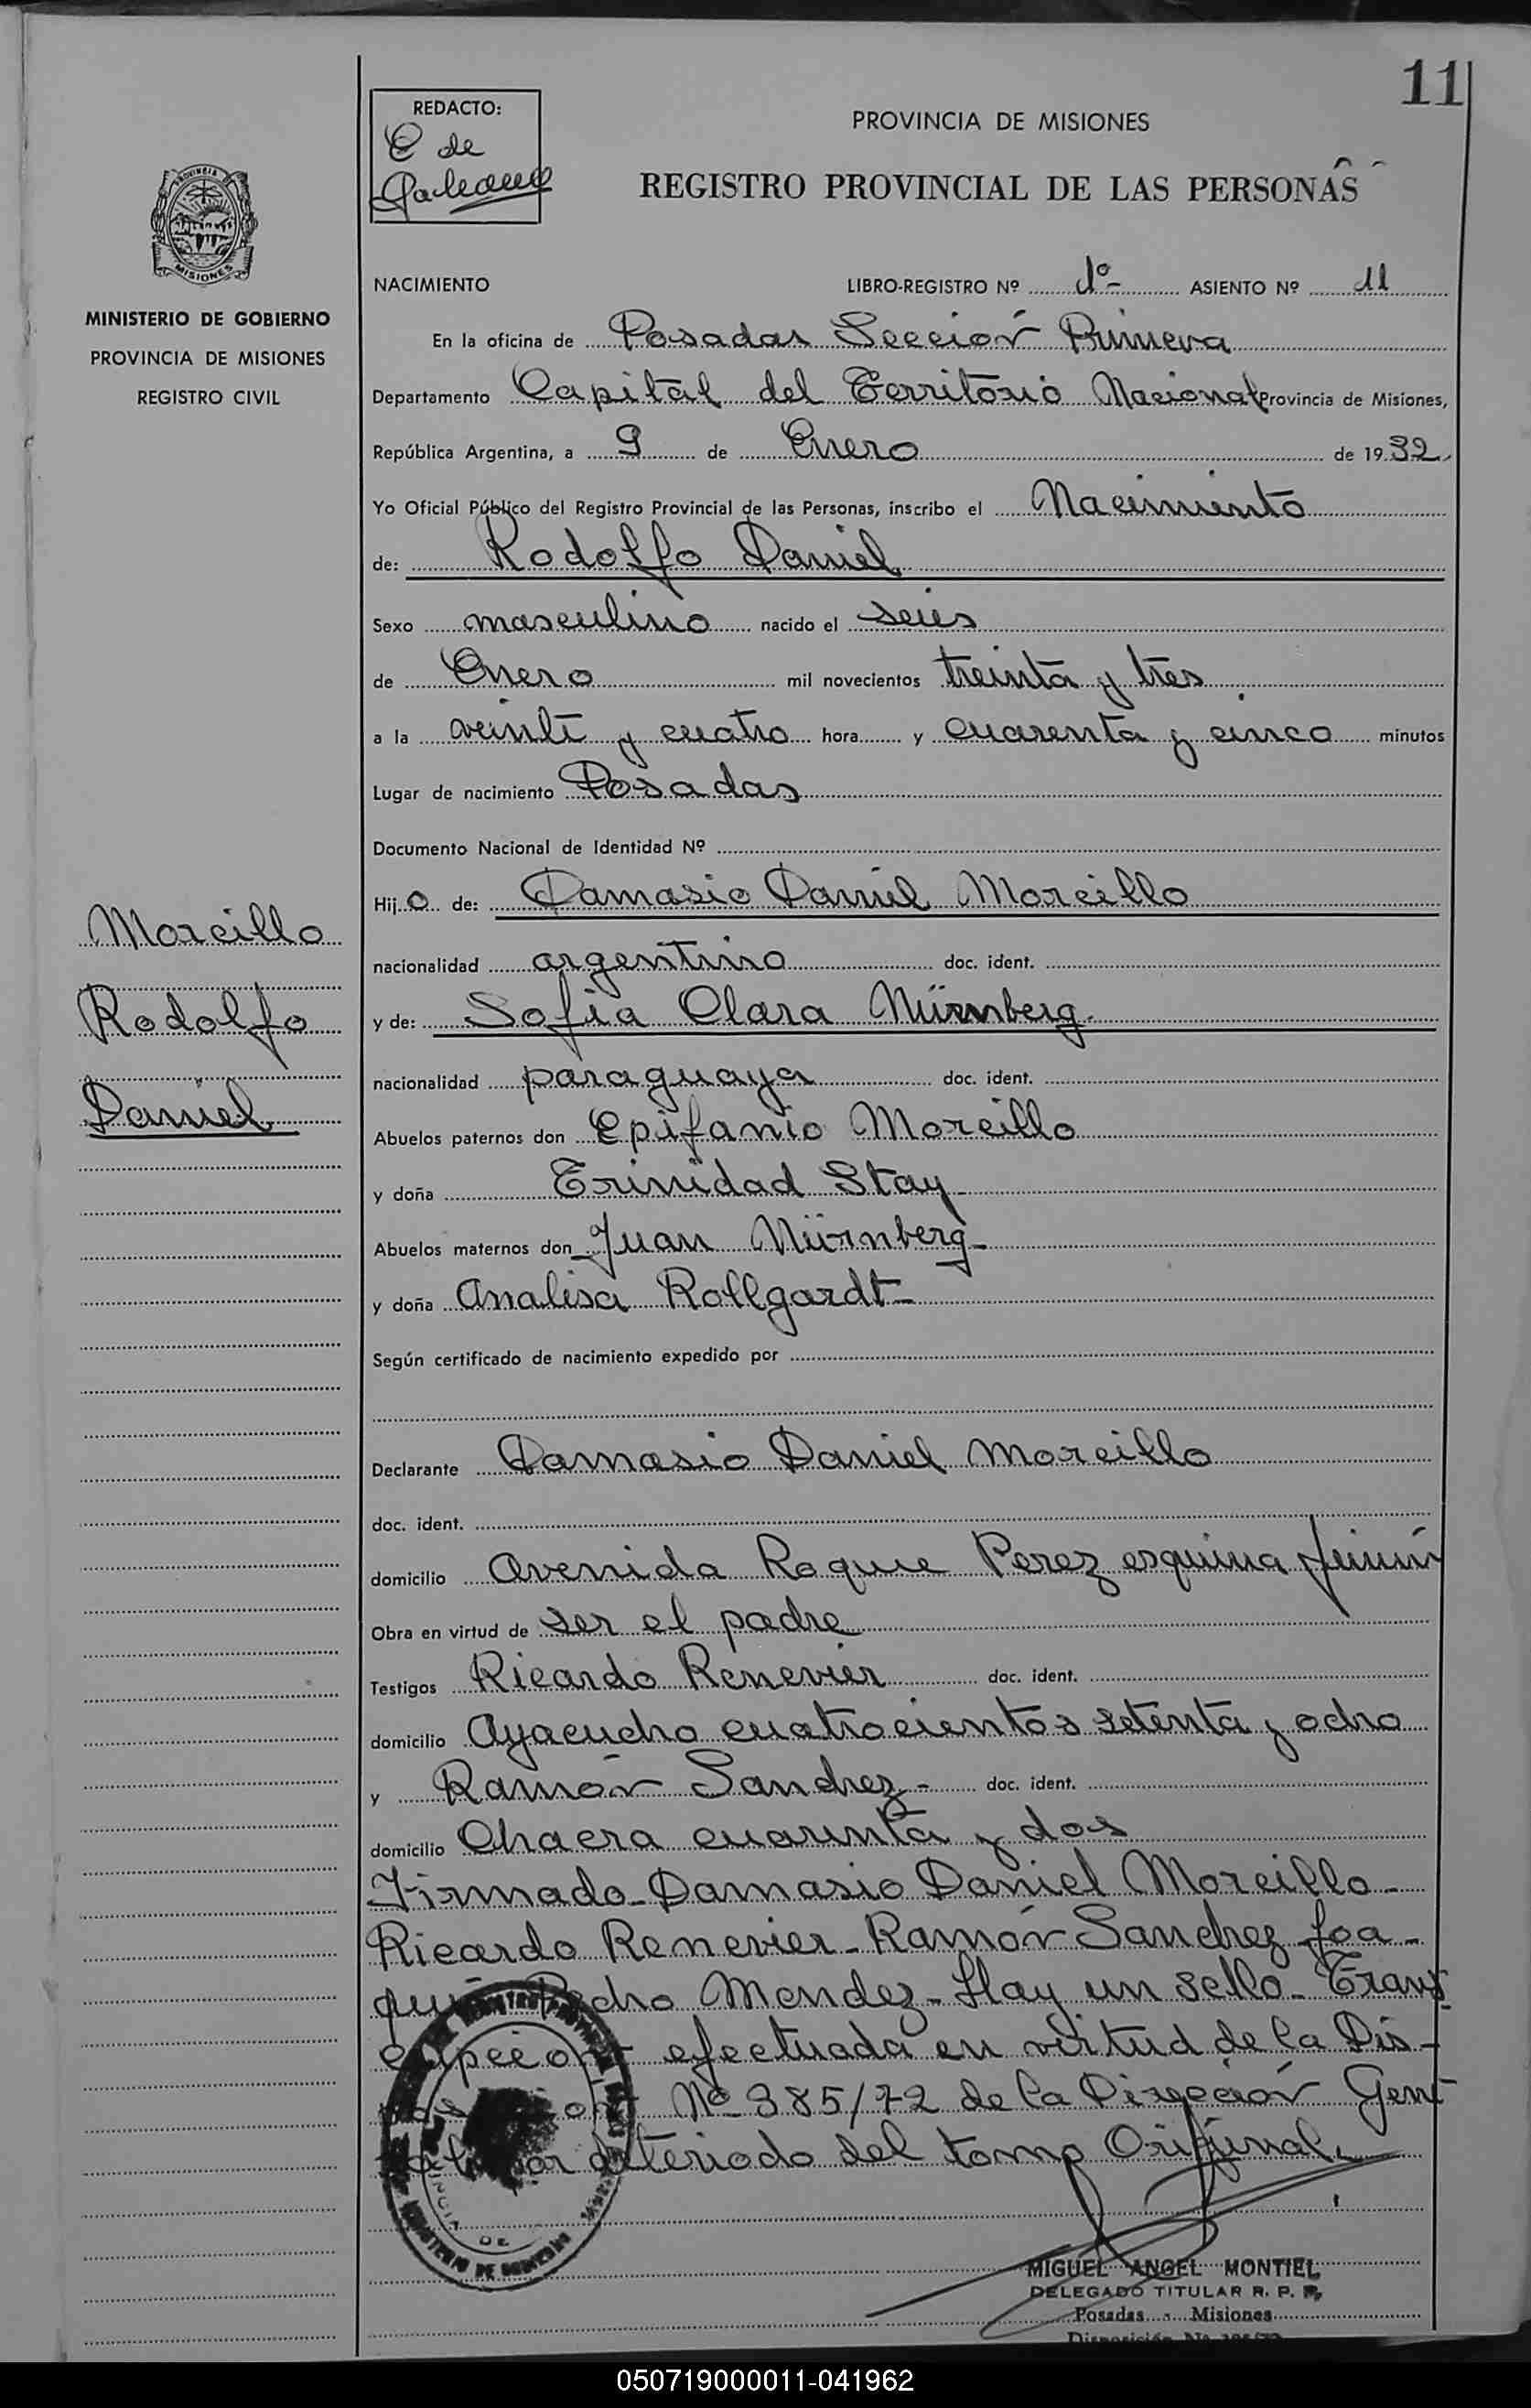 11
REDACTO:
C de
Galeano
PROVINCIA DE MISIONES
REGISTRO PROVINCIAL DE LAS PERSONAS
PROVINCIA DE
MISIONES
MINISTERIO DE GOBIERNO
PROVINCIA DE MISIONES
REGISTRO CIVIL
NACIMIENTO LIBRO-REGISTRO Nº 1º- ASIENTO Nº 11
En la oficina de Posadas Sección Primera
Departamento Capital del Territorio Nacional Provincia de Misiones,
República Argentina, a 9 de Enero de 1932
Yo Oficial Público del Registro Provincial de las Personas, inscribo el Nacimiento
de: Rodolfo Daniel
Sexo masculino nacido el seis
de Enero mil novecientos treinta y tres
a la veinte y cuatro hora y cuarenta y cinco minutos
Lugar de nacimiento Posadas
Documento Nacional de Identidad Nº
Hijo de: Damasio Daniel Morcillo
nacionalidad argentino doc. ident.
y de: Sofia Clara Nürnberg.
nacionalidad paraguaya doc. ident.
Abuelos paternos don Epifanio Morcillo
y doña Trinidad Stay
Abuelos maternos don Juan Nürnberg-
y doña Analisa Rollgardt-
Según certificado de nacimiento expedido por
Declarante Damasio Daniel Morcillo
doc. ident.
domicilio Avenida Roque Perez esquina Junín
Obra en virtud de ser el padre
Testigos Ricardo Renevier doc. ident.
domicilio Ayacucho cuatrocientos setenta y ocho
y Ramón Sanchez- doc. ident.
domicilio Chacra cuarenta y dos
Firmado-Damasio Daniel Morcillo-
Ricardo Renevier-Ramón Sanchez Joa-
quin Pedro Mendez-Hay un sello-Trans
cripción efectuada en virtud de la Dis-
posición Nº 385/72 de la Dirección Gene
ral por deteriodo del tomo Original.
Morcillo
Rodolfo
Daniel
MIGUEL ANGEL MONTIEL
DELEGADO TITULAR R. P. P.
Posadas - Misiones
050719000011-041962